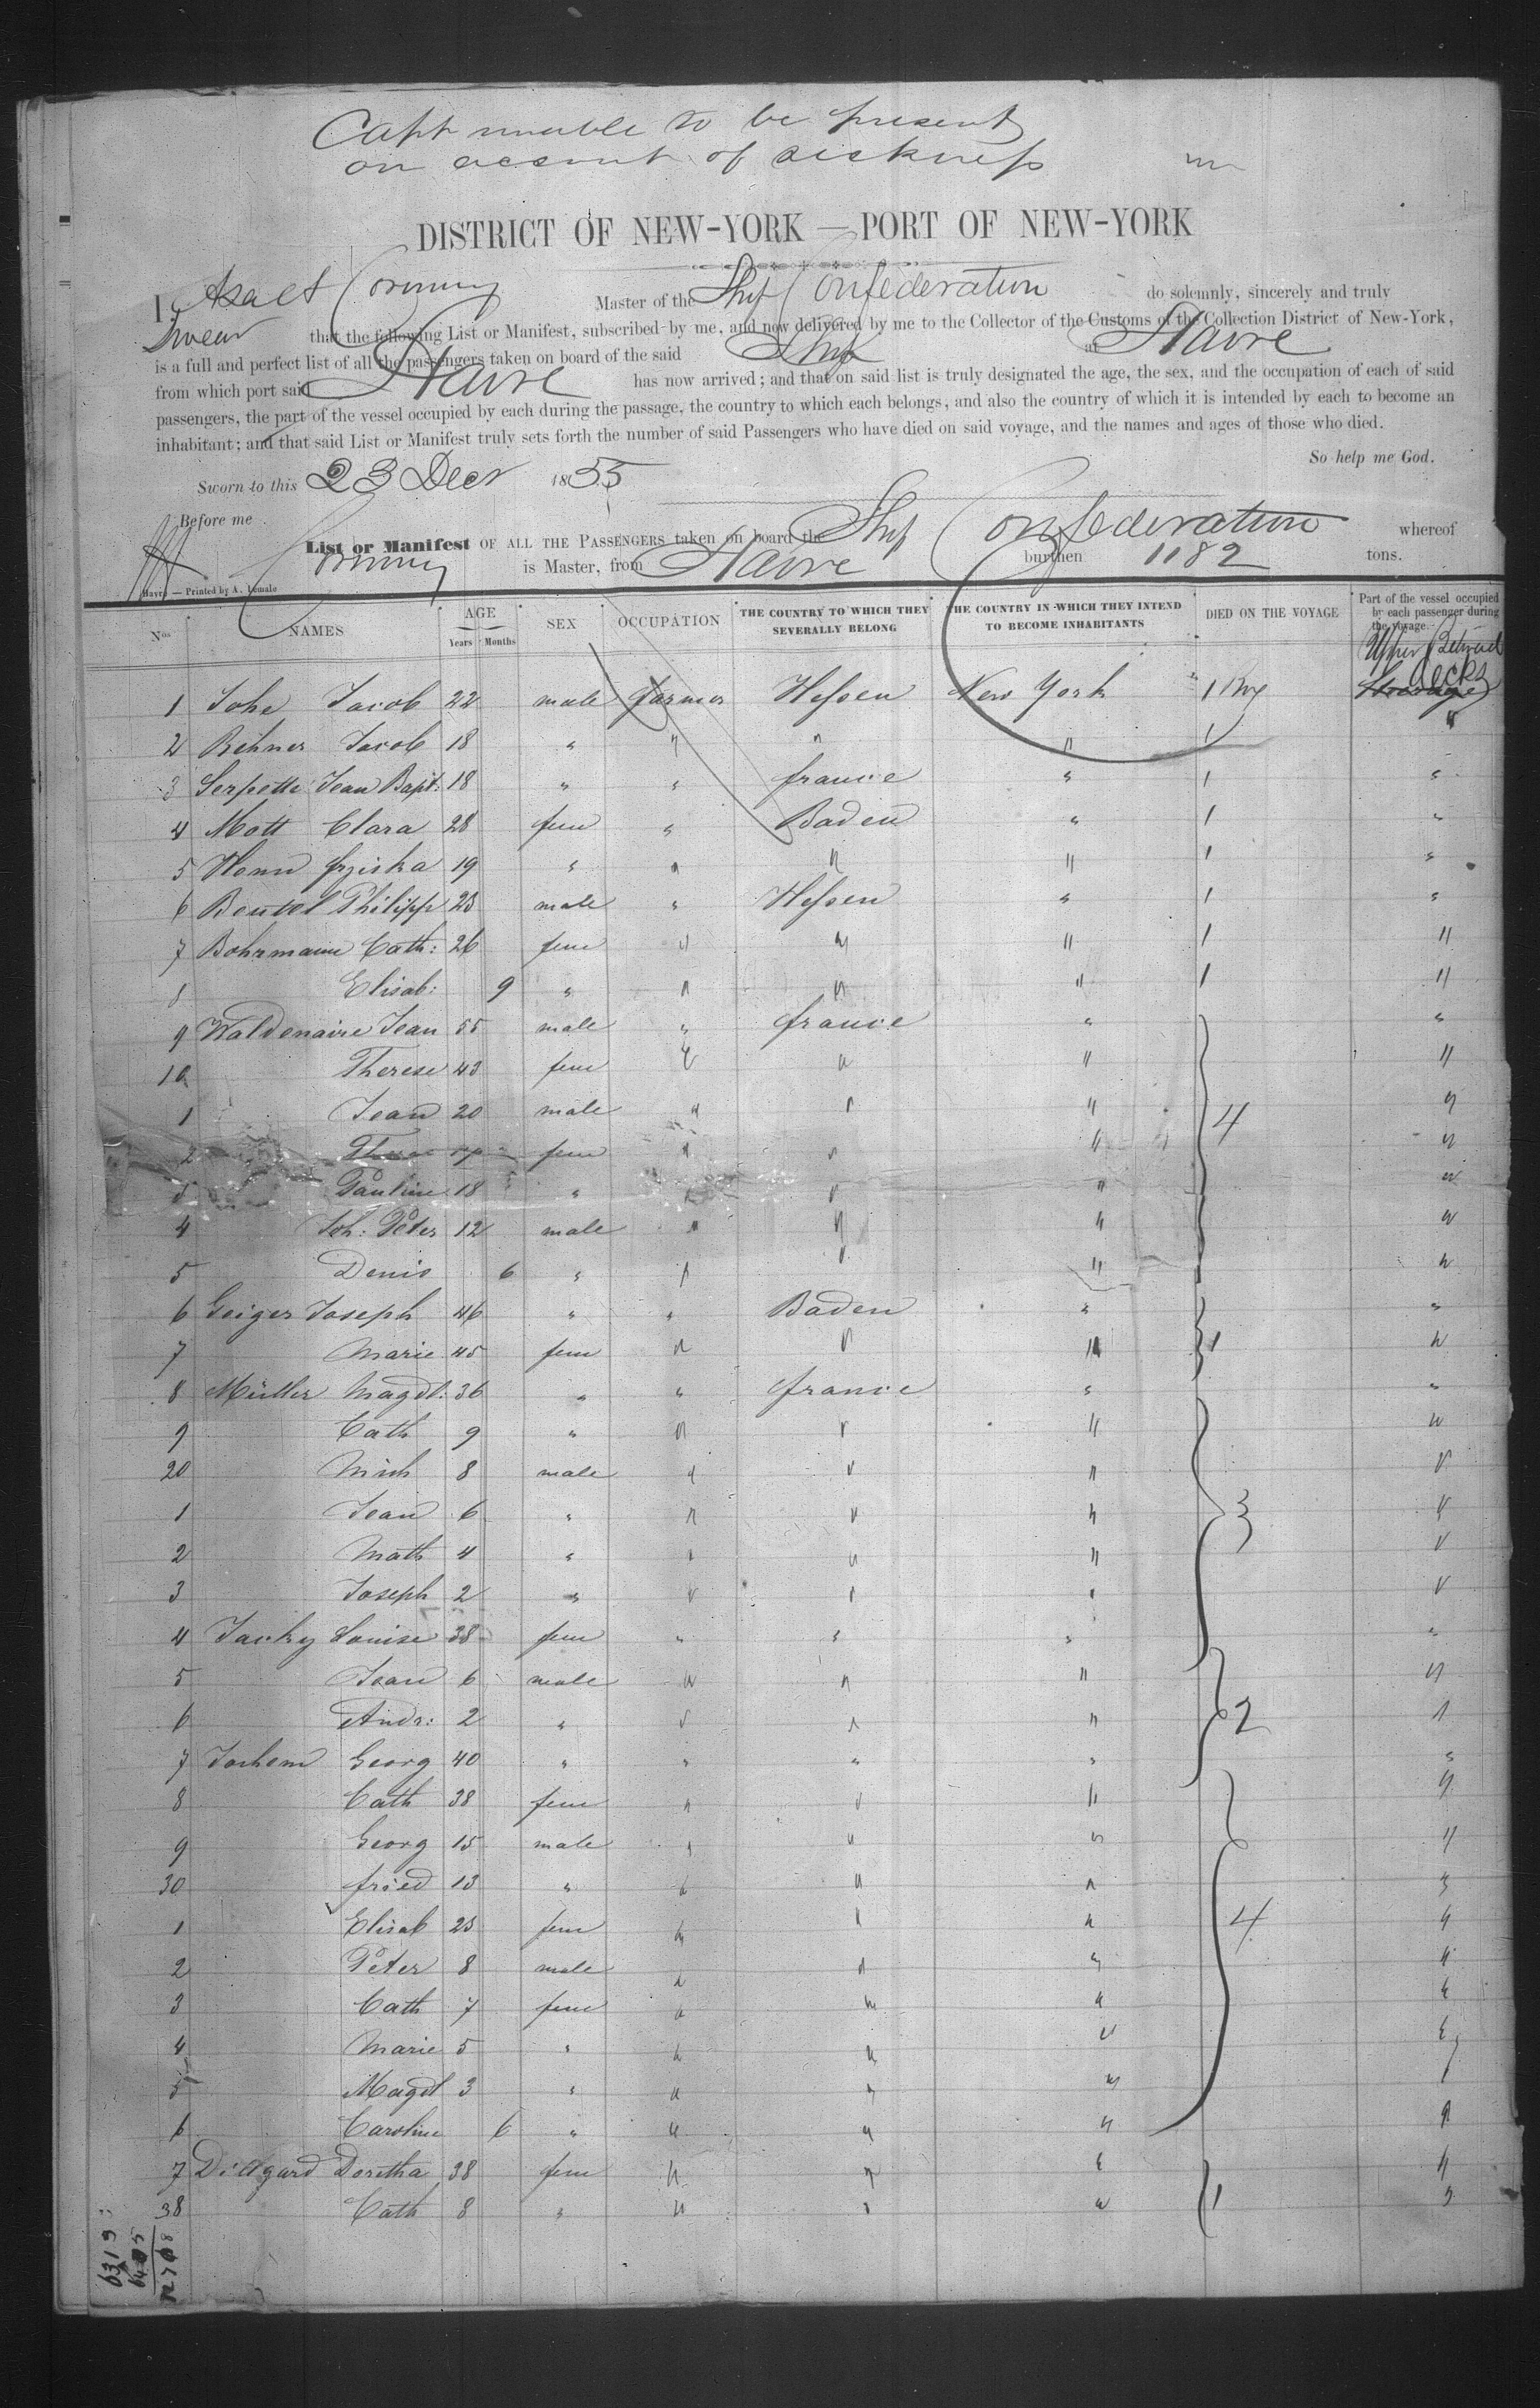 Capt unable to be present
on account of sickness
DISTRICT OF NEW-YORK — PORT OF NEW-YORK
I, Asa et Corning Master of the Ship Confederation do solemnly, sincerely and truly
Swear that the following List or Manifest, subscribed by me, and now delivered by me to the Collector of the Customs of the Collection District of New-York,
is a full and perfect list of all the passengers taken on board of the said Ship at Havre
from which port said Havre has now arrived; and that on said list is truly designated the age, the sex, and the occupation of each of said
passengers, the part of the vessel occupied by each during the passage, the country to which each belongs, and also the country of which it is intended by each to become an
inhabitant; and that said List or Manifest truly sets forth the number of said Passengers who have died on said voyage, and the names and ages of those who died.
So help me God.
Sworn to this 23 Decr 1855
Before me
List or Manifest OF ALL THE PASSENGERS taken on board the Ship Confederation whereof
Corning is Master, from Havre burthen 1182 tons.
Havre — Printed by A. Lemale
Nos NAMES AGE Years Months SEX OCCUPATION THE COUNTRY TO WHICH THEY SEVERALLY BELONG THE COUNTRY IN WHICH THEY INTEND TO BECOME INHABITANTS DIED ON THE VOYAGE Part of the vessel occupied by each passenger during the voyage.
Upper Between decks
1 Johe Jacob 22 male farmer Hessen New York 1 Steerage
2 Rehner Jacob 18 " " " " 1 "
3 Serpette Jean Bapt: 18 " " france " 1 "
4 Mott Clara 28 fem " Baden " 1 "
5 Henn fziska 19 " " " " 1 "
6 Beutel Philipp 23 male " Hessen " 1 "
7 Bohrmann Cath: 26 fem " " " 1 "
8 Elisab: 9 " " " " 1 "
9 Waldenaire Jean 55 male " france " "
10 Therese 43 fem " " " "
1 Jean 20 male " " " 4 "
2 fem " " " "
3 Pauline 18 " " " " "
4 Joh: Peter 12 male " " " "
5 Denis 6 " " " " "
6 Geiger Joseph 46 " " Baden " "
7 Marie 45 fem " " " 1 "
8 Müller Magdl: 36 " " france " "
9 Cath 9 " " " " "
20 Mich 8 male " " " "
1 Jean 6 " " " " 3 "
2 Math 4 " " " " "
3 Joseph 2 " " " " "
4 Jacky Louise 38 fem " " " "
5 Jean 6 male " " " "
6 Andr: 2 " " " " 2 "
7 Jochem Georg 40 " " " " "
8 Cath 38 fem " " " "
9 Georg 15 male " " " "
30 fried 13 " " " " "
1 Elisab 23 fem " " " 4 "
2 Peter 8 male " " " "
3 Cath 7 fem " " " "
4 Marie 5 " " " " "
5 Magdl 3 " " " " "
6 Caroline 6 " " " " "
7 Dillgard Doretha 38 fem " " " "
38 Cath 8 " " " " 1 "